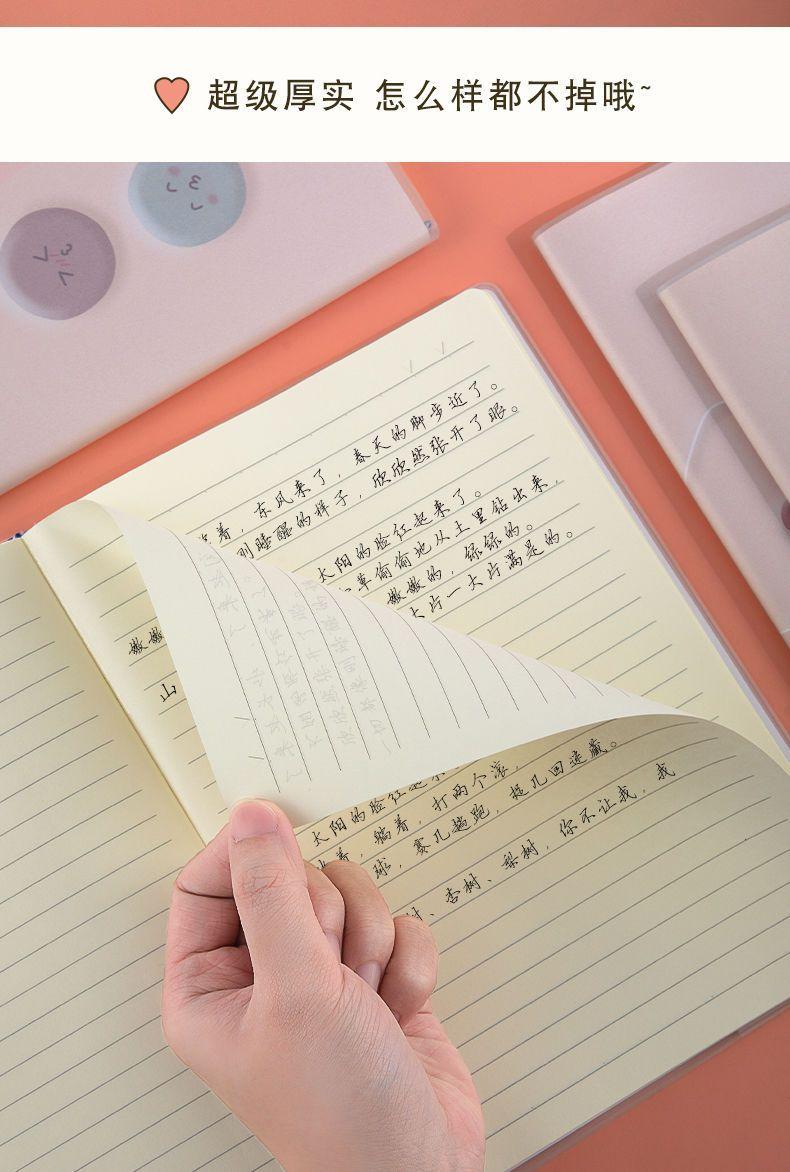 超级厚实 怎么样都不掉哦~
着，东风来了，春天的脚步近了。
睡醒的样子，欣欣然张开了眼。
太阳的脸红起来了。
草偷偷地从土里钻出来，
嫩嫩的，绿绿的。
大片一大片满是的。
嫩嫩
山
太阳的脸红起来
着，躺着，打两个滚，
球，赛几趟跑，捉几回迷藏。
树、杏树、梨树，你不让我，我